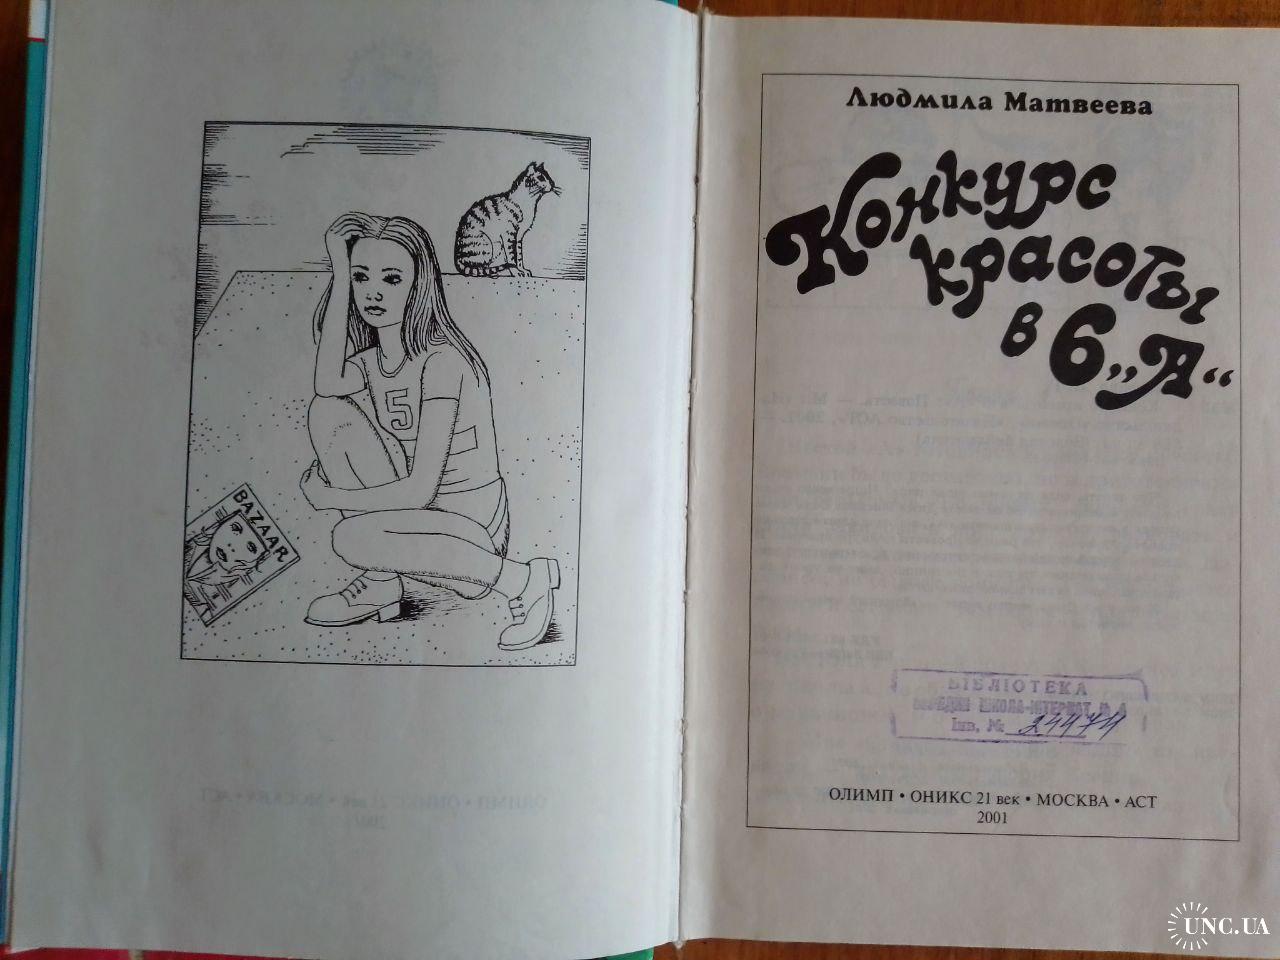 5
BAZAAR
Людмила Матвеева
Конкурс
красоты
в 6 „А“
БІБЛІОТЕКА
ШКОЛА-ІНТЕРНАТ
Інв. № 24474
ОЛИМП • ОНИКС 21 век • МОСКВА • АСТ
2001
UNC.UA